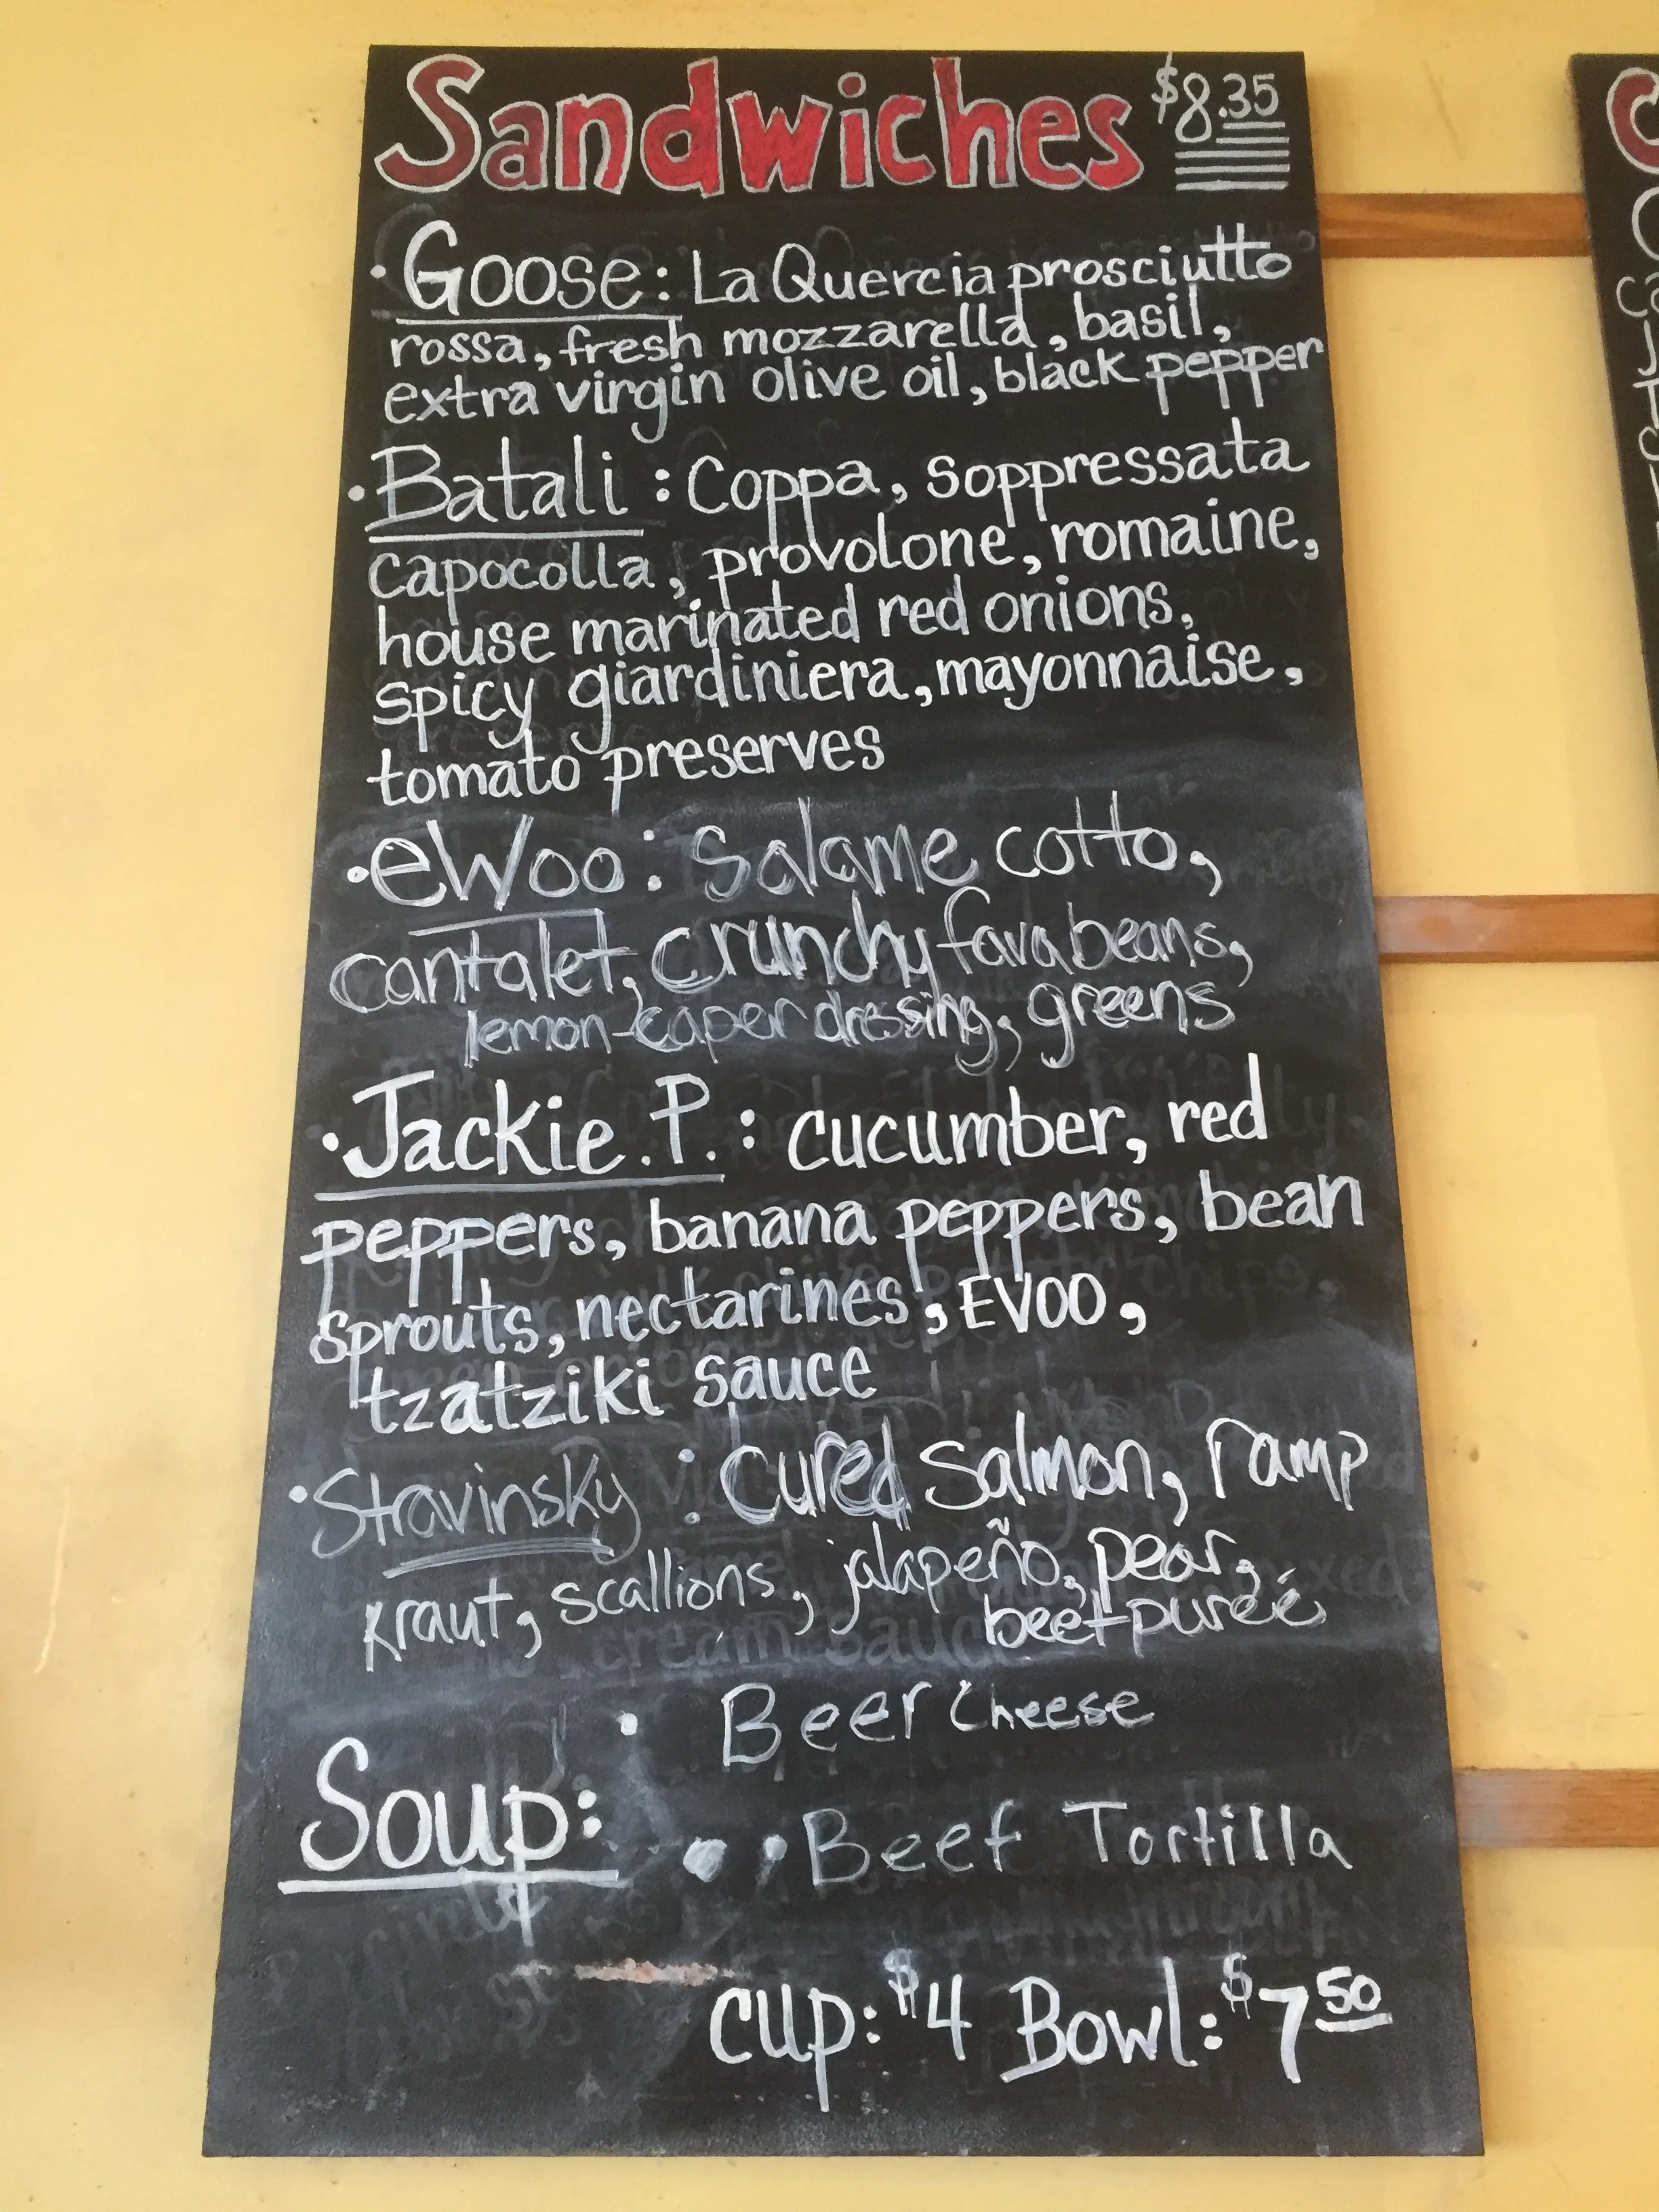 Sandwiches $8.35
• Goose: La Quercia prosciutto
rossa, fresh mozzarella, basil,
extra virgin olive oil, black pepper
• Batali: Coppa, soppressata
capocolla, provolone, romaine,
house marinated red onions,
spicy giardiniera, mayonnaise,
tomato preserves
• eWoo: Salame cotto,
cantalet, crunchy fava beans,
lemon-caper dressing, greens
• Jackie.P.: cucumber, red
peppers, banana peppers, bean
sprouts, nectarines, EVOO,
tzatziki sauce
• Stravinsky: Cured Salmon, ramp
kraut, scallions, jalapeño, pear,
beet pureé
• Beer Cheese
Soup:
• • Beef Tortilla
cup: $4 Bowl: $7 50